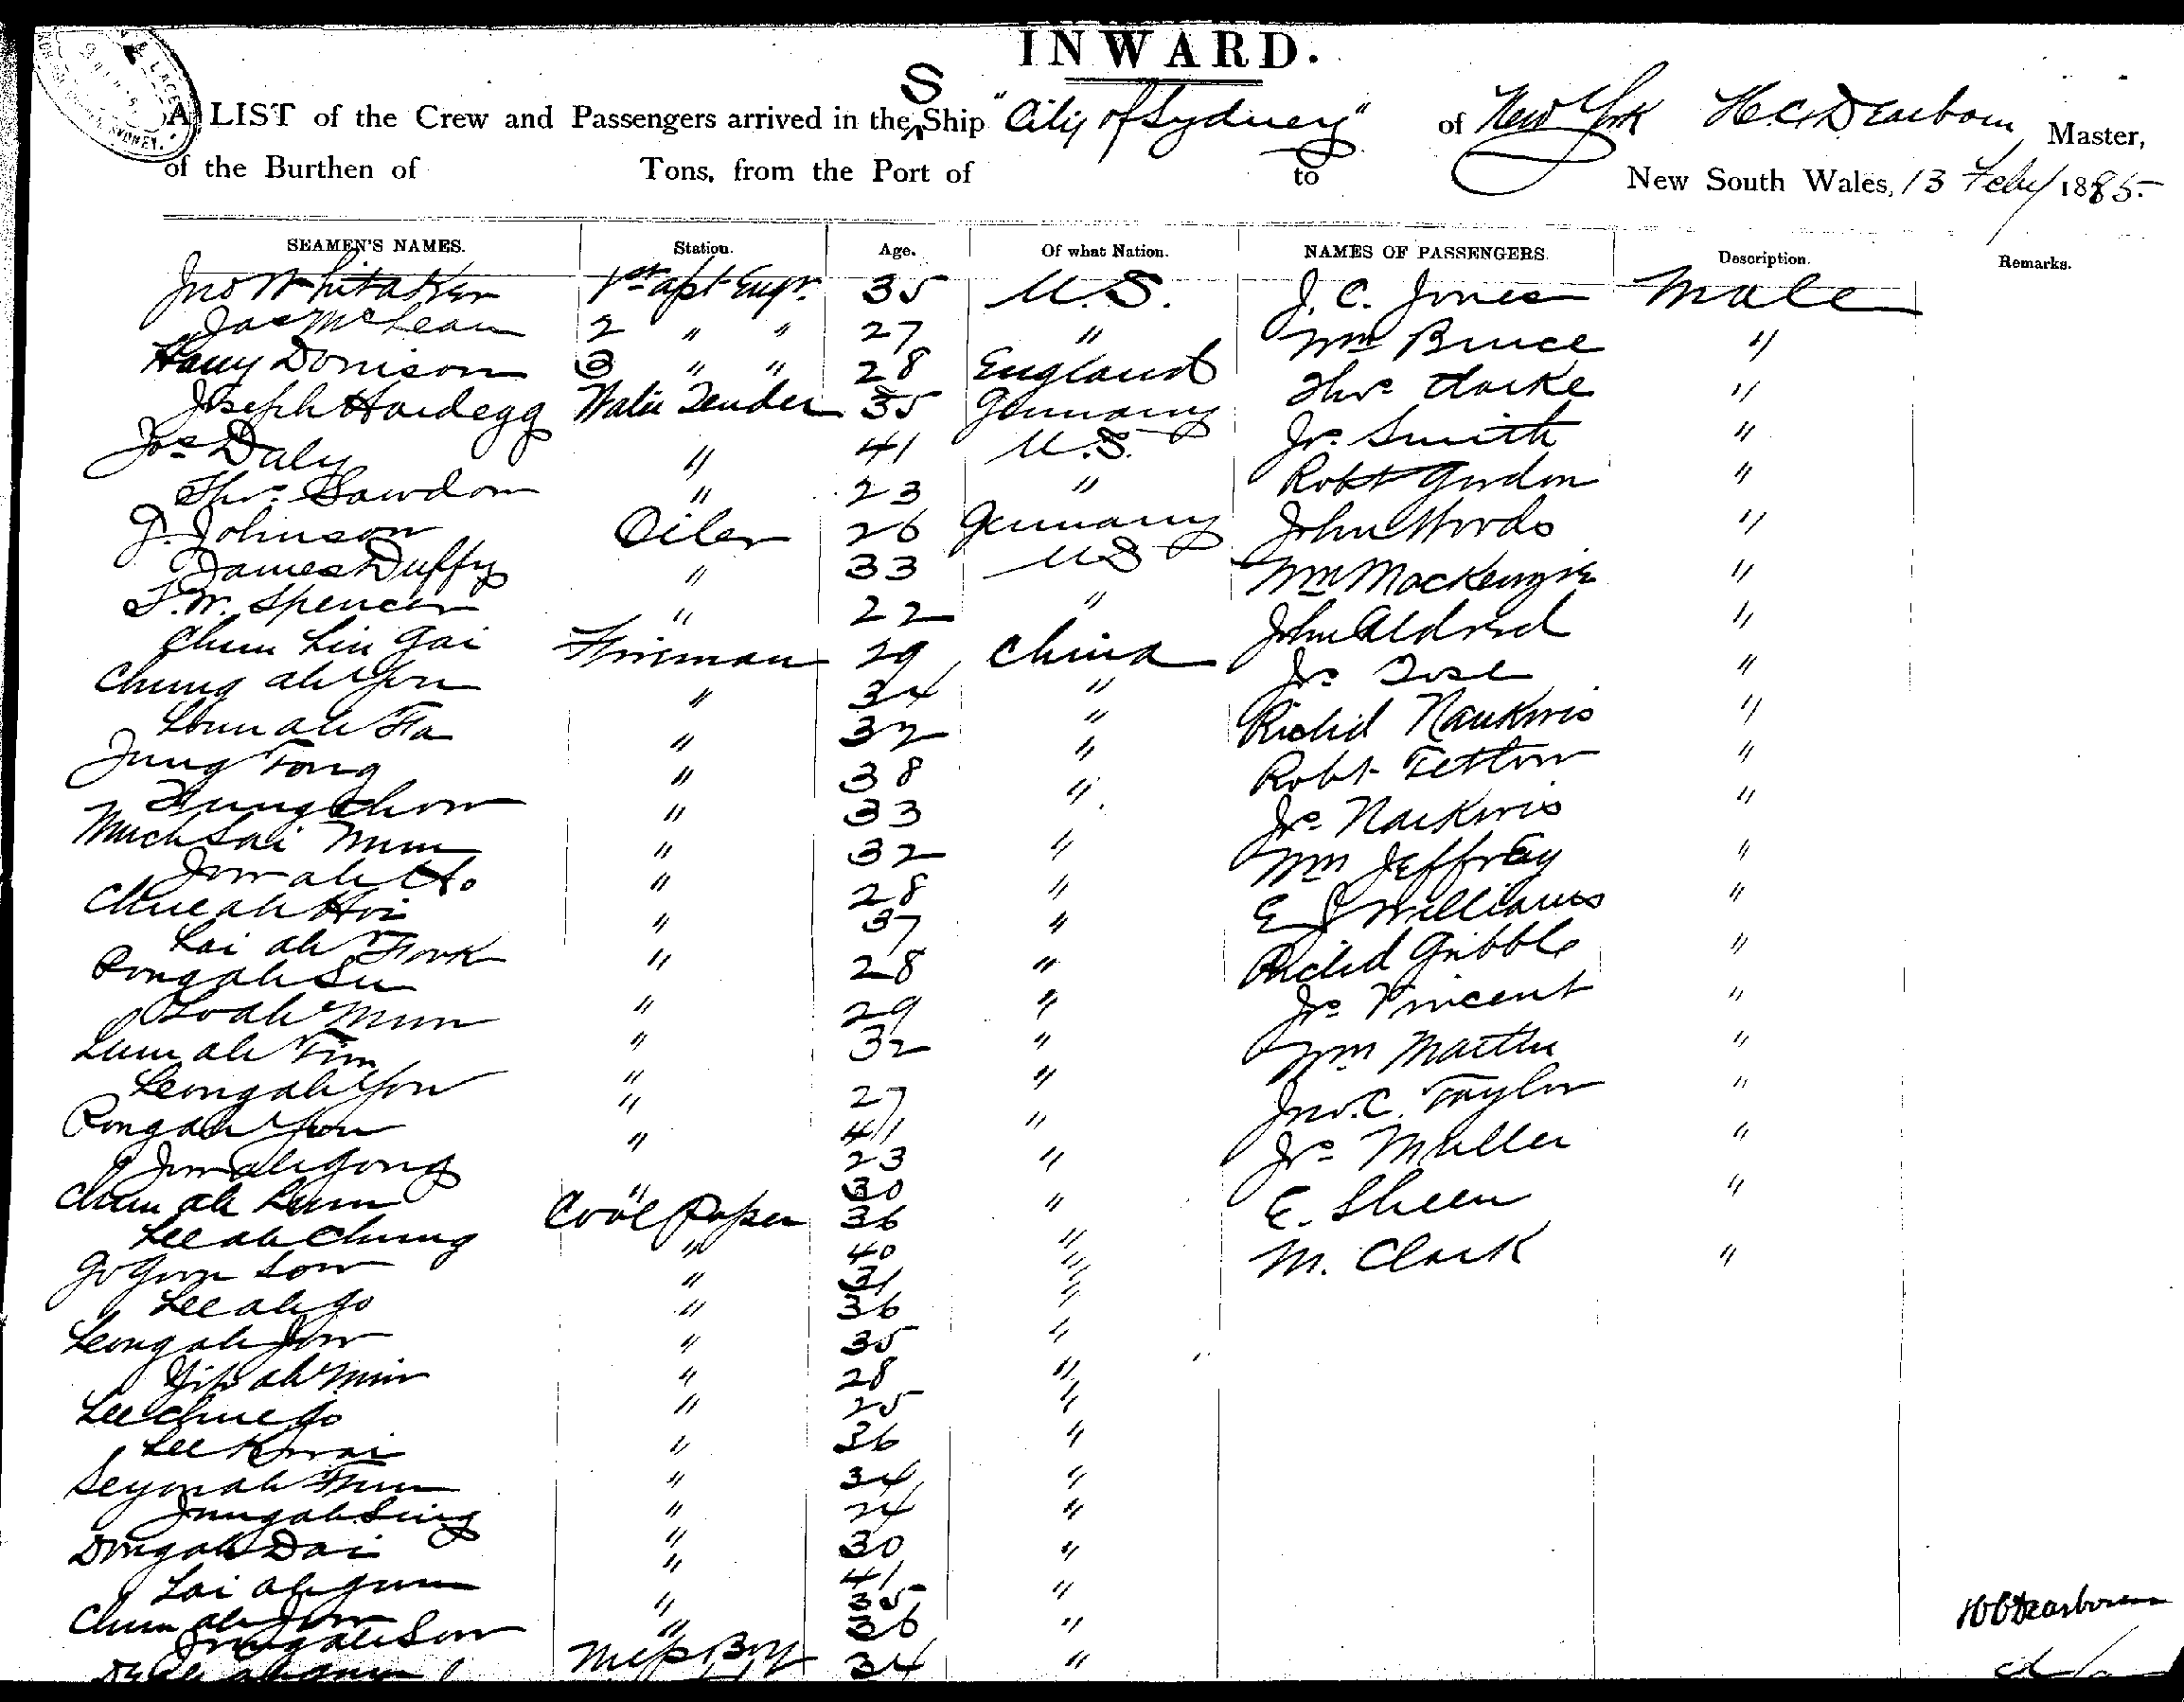 INWARD.
A LIST of the Crew and Passengers arrived in the S Ship "City of Sydney" of New York H.C. Dearborn Master,
of the Burthen of Tons, from the Port of to New South Wales, 13 Feby 1885.
SEAMEN'S NAMES. Station. Age. Of what Nation. NAMES OF PASSENGERS. Description. Remarks.
Jno Whitaker 1st asst Engr. 35 U.S. J. C. Jones Male
Jas McLean 2 " " 27 " Wm Bruce "
Harry Donison 3 " " 28 England Thos Clarke "
Joseph Hardegg Water Tender 35 Germany Jos. Smith "
Jos Daly " 41 U.S. Robt Gordon "
Thos. Sawdon " 23 " John Woods "
J. Johnson Oiler 26 Germany Wm MacKenzie "
James Duffy " 33 US John Aldred "
F. W. Spencer " 22 " Jos Tosl "
Chum Lin Gai Fireman 29 China Richd Nankivis "
Chung ah You " 34 " Robt Tetlow "
Loun ah Fa " 32 " Jos Nankivis "
Jung Fong " 38 " Wm Jeffrey "
Fung Chow " 33 " E J Williams "
Much Sai Mun " 32 " Richd Gribble "
Jow ah Ho " 28 " Jos Vincent "
Chue ah Hoi " 37 " Wm Martin "
Lai ah Fook " 28 " Jno. C. Taylor "
Pong ah Su " 29 " Jos Muller "
Loo ah Mun " 32 " E. Sheen "
Lum ah Tim " 27 " M. Clark "
Leong ah You " 41 "
Pong ah You " 23 "
Jow ah Gong " 30 "
Chum ah Lum Coal Passer 36 "
Lee ah Chung " 40 "
Go Gun Low " 31 "
Lee ah Go " 36 "
Leong ah Jow " 35 "
Yip ah Min " 28 "
Lee Chue Go " 25 "
Lee Kwai " 36 "
ah " 34 "
Jung ah Sing " 24 "
Dong ah Dai " 30 "
Lai ah Gum " 41 "
Chum ah Jow " 35 " H C Dearborn
Jung ah Sow " 36 "
Mess Boy 34 "